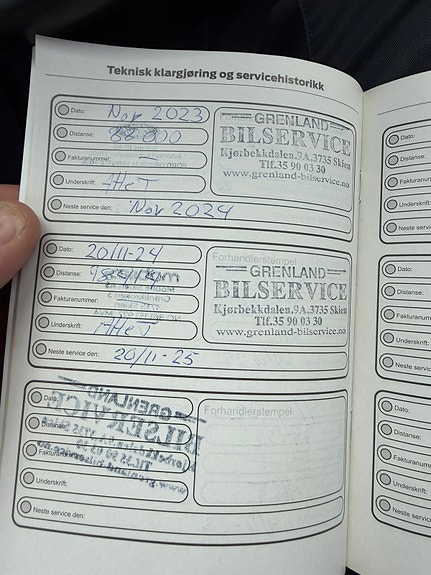 Teknisk klargjøring og servicehistorikk
Dato: Nov 2023
Distanse:
Fakturanummer: —
Underskrift: AHeT
Neste service den: Nov 2024
GRENLAND
BILSERVICE
Kjørbekkdalen.9A.3735 Skien
Tlf.35 90 03 30
www.grenland-bilservice.no
Dato: 20/11-24
Distanse:
Fakturanummer:
Underskrift: AHeT
Neste service den: 20/11-25
Forhandlerstempel
GRENLAND
BILSERVICE
Kjørbekkdalen.9A.3735 Skien
Tlf.35 90 03 30
www.grenland-bilservice.no
Dato:
Distanse:
Fakturanummer:
Underskrift:
Neste service den:
Forhandlerstempel
GRENLAND
BILSERVICE
Dato:
Distanse:
Fakturanummer:
Underskrift:
Neste
Dato:
Distanse:
Fakturanummer:
Underskrift:
Neste service
Dato:
Distanse:
Fakturanummer:
Underskrift:
Neste service